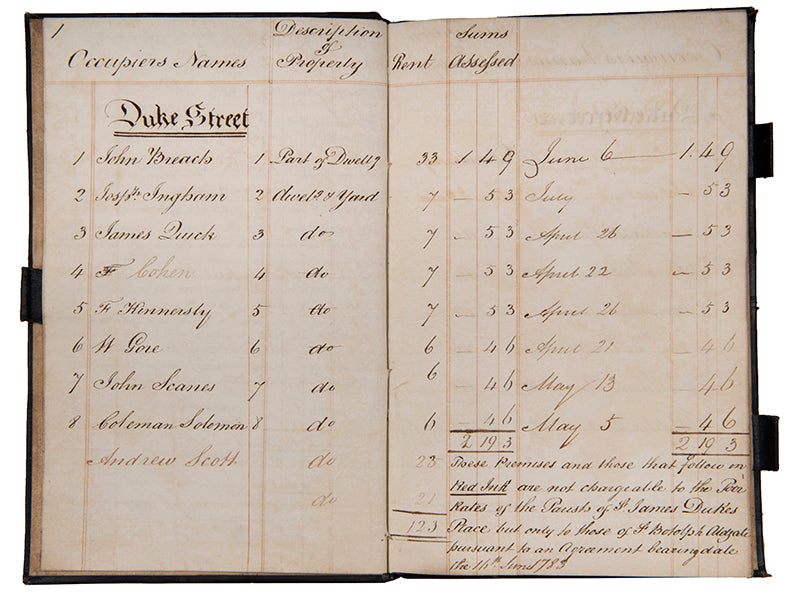 1
Occupiers Names Description of Property Rent Sums Assessed
Duke Street
1 John Breach 1 Part of Dwellg 33 1 4 9 June 6 1 4 9
2 Josph Ingham 2 dwelg & Yard 7 — 5 3 July — 5 3
3 James Quick 3 do 7 — 5 3 April 26 — 5 3
4 F Cohen 4 do 7 — 5 3 April 22 — 5 3
5 F Kinnersly 5 do 7 — 5 3 April 26 — 5 3
6 W Gore 6 do 6 — 4 6 April 21 — 4 6
7 John Scanes 7 do 6 — 4 6 May 13 — 4 6
8 Coleman Solomon 8 do 6 — 4 6 May 5 — 4 6
2 19 3 2 19 3
Andrew Scott do 23 These Premises and those that follow in
Red Ink are not chargeable to the Poor
do 21 Rates of the Parish of St James Dukes
123 Place but only to those of St Botolph Aldgate
pursuant to an Agreement bearing date
the 14th June 1783